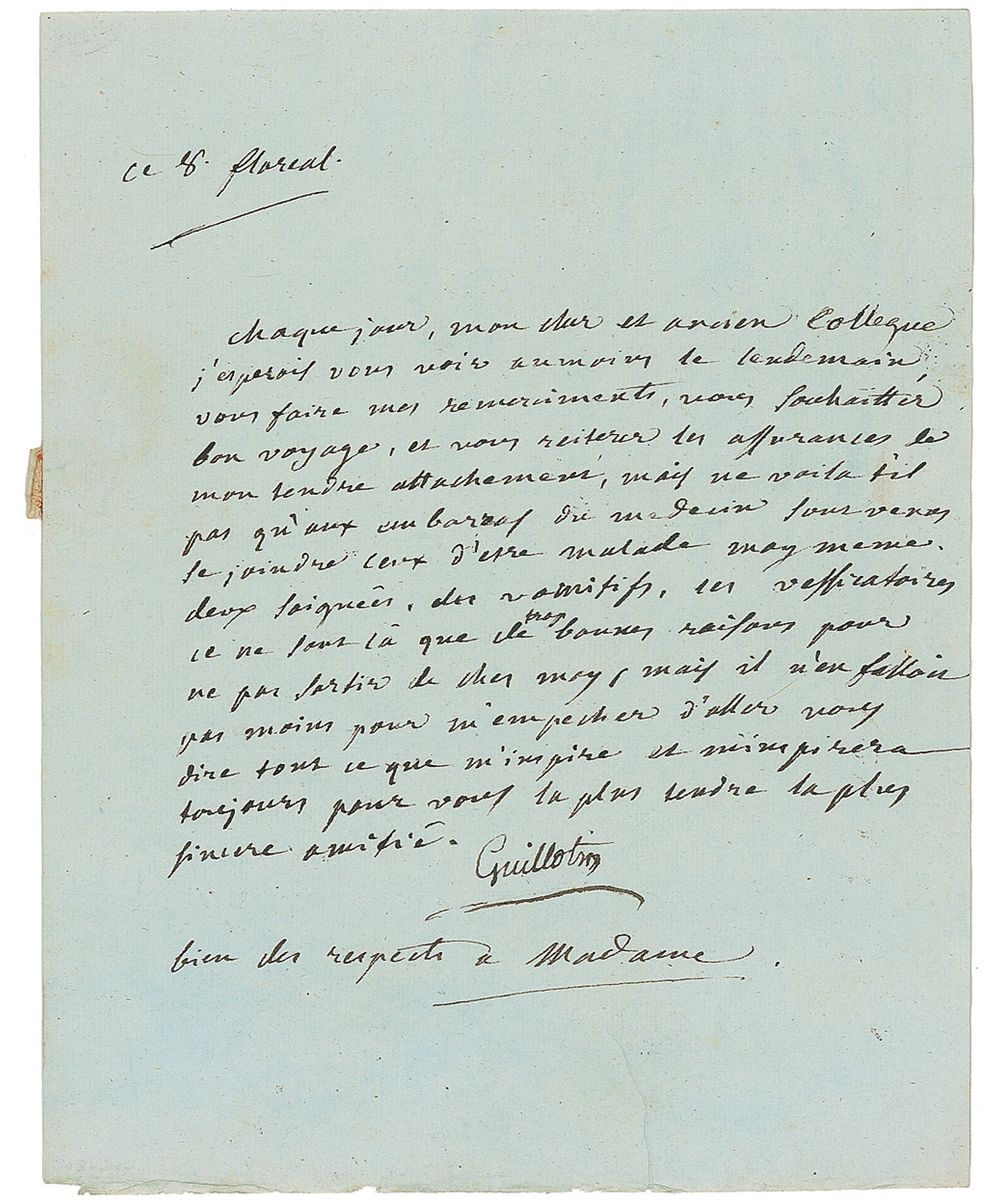 ce 8. floreal.
chaque jour, mon cher et ancien Collegue
j'esperois vous voir aumoins le lendemain,
vous faire mes remerciments, vous souhaitter
bon voyage, et vous reiterer les assurances de
mon tendre attachement, mais ne voila t'il
pas qu'aux embarras du medecin sont venus
se joindre ceux d'etre malade moy meme.
deux saignées, des vomitifs, les vessicatoires
ce ne sont là que de trop bonnes raisons pour
ne pas sortir de ches moy, mais il n'en falloit
pas moins pour m'empecher d'aller vous
dire tout ce que m'inspire et m'inspirera
toujours pour vous la plus tendre la plus
sincere amitié.
Guillotin
bien des respects a Madame.